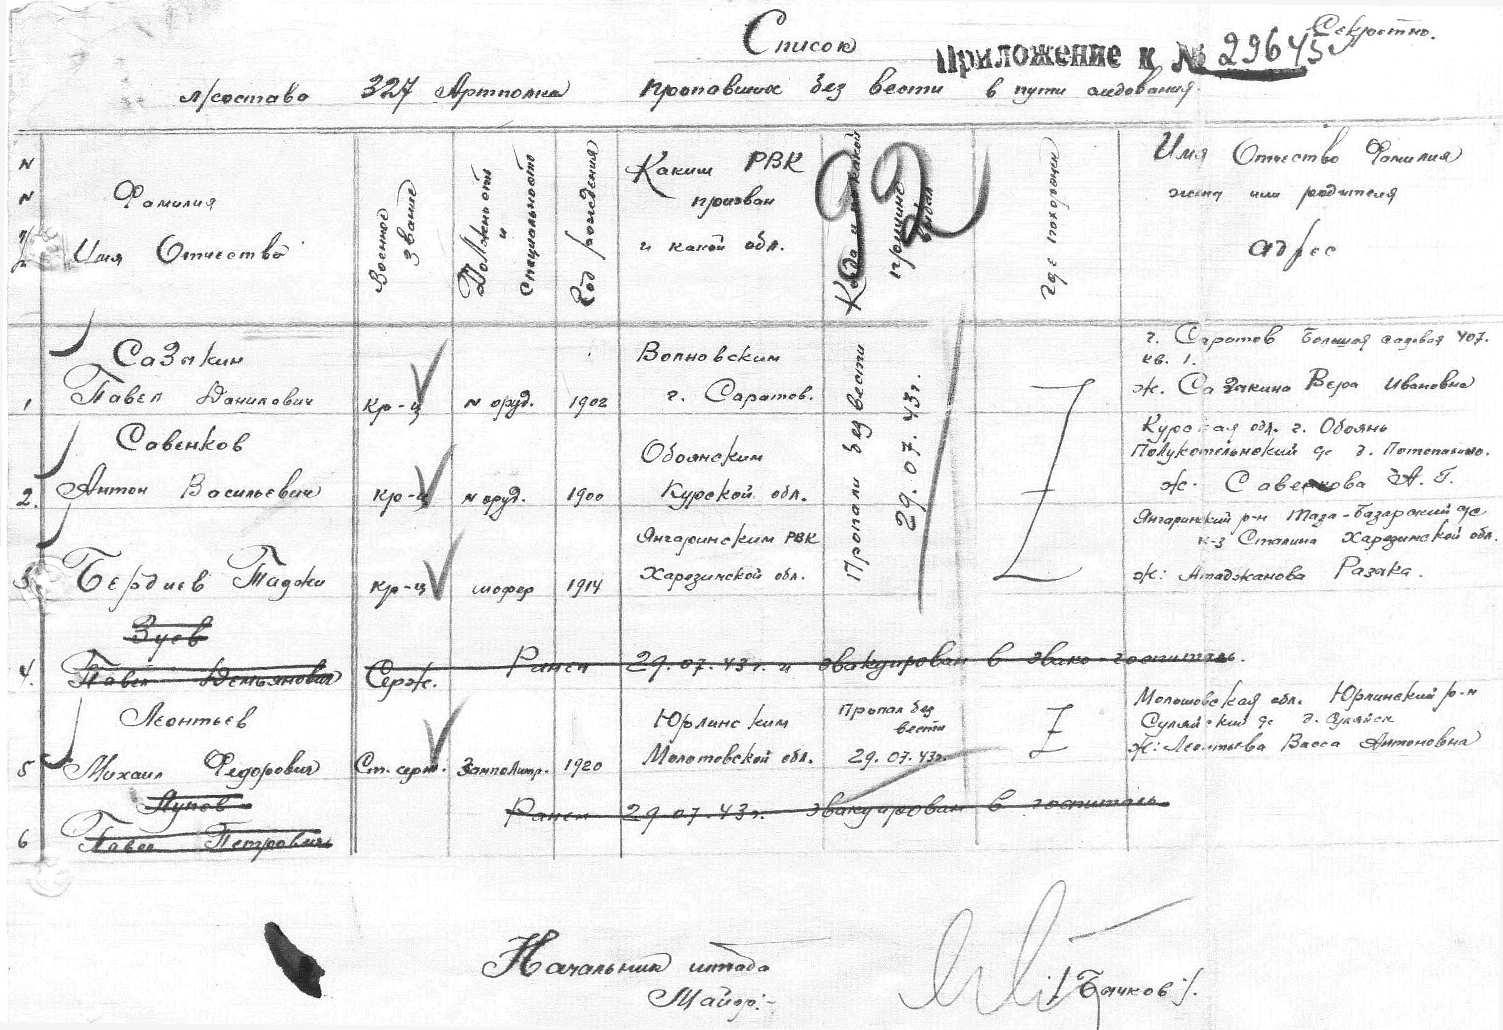 Секретно.
Список
Приложение к № 29645
л/состава 327 Артполка пропавших без вести в пути следования.
N N п/п
Фамилия
Имя Отчество
Военное звание
Должность и специальность
Год рождения
Каким РВК
призван
и какой обл.
Когда и по какой причине выбыл
Где похоронен
Имя Отчество Фамилия
жены или родителя
адрес
1 Сазыкин
Павел Данилович
кр-ц
N оруд.
1902
Волновским
г. Саратов.
Пропали без вести
29.07.43г.
Z
г. Саратов Большая садовая 407.
кв. 1.
ж. Сазыкина Вера Ивановна
2. Савенков
Антон Васильевич
кр-ц
N оруд.
1900
Обоянским
Курской обл.
Курская обл. г. Обоянь
Полукотельнский с/с д. Потопахино.
ж. Савенкова А. Г.
3 Бердиев Таджи
кр-ц
шофер
1914
Янгаринским РВК
Харезинской обл.
Янгаринский р-н Таза-Базарский с/с
к-з Сталина Харезинской обл.
ж: Атаджанова Разака.
4. Зуев
Павел Демьянович
Серж.
Ранен 29.07.43г. и эвакуирован в эвако-госпиталь.
5 Леонтьев
Михаил Федорович
Ст. серж.
Замполитр.
1920
Юрлинским
Молотовской обл.
Пропал без
вести
29.07.43г.
Z
Молотовская обл. Юрлинский р-н
Сулайский с/с д. Сулайск
ж: Леонтьева Васса Антоновна
6 Лунов
Павел Петрович
Ранен 29.07.43г. эвакуирован в госпиталь
Начальник штаба
Майор:-
/Бычков/.